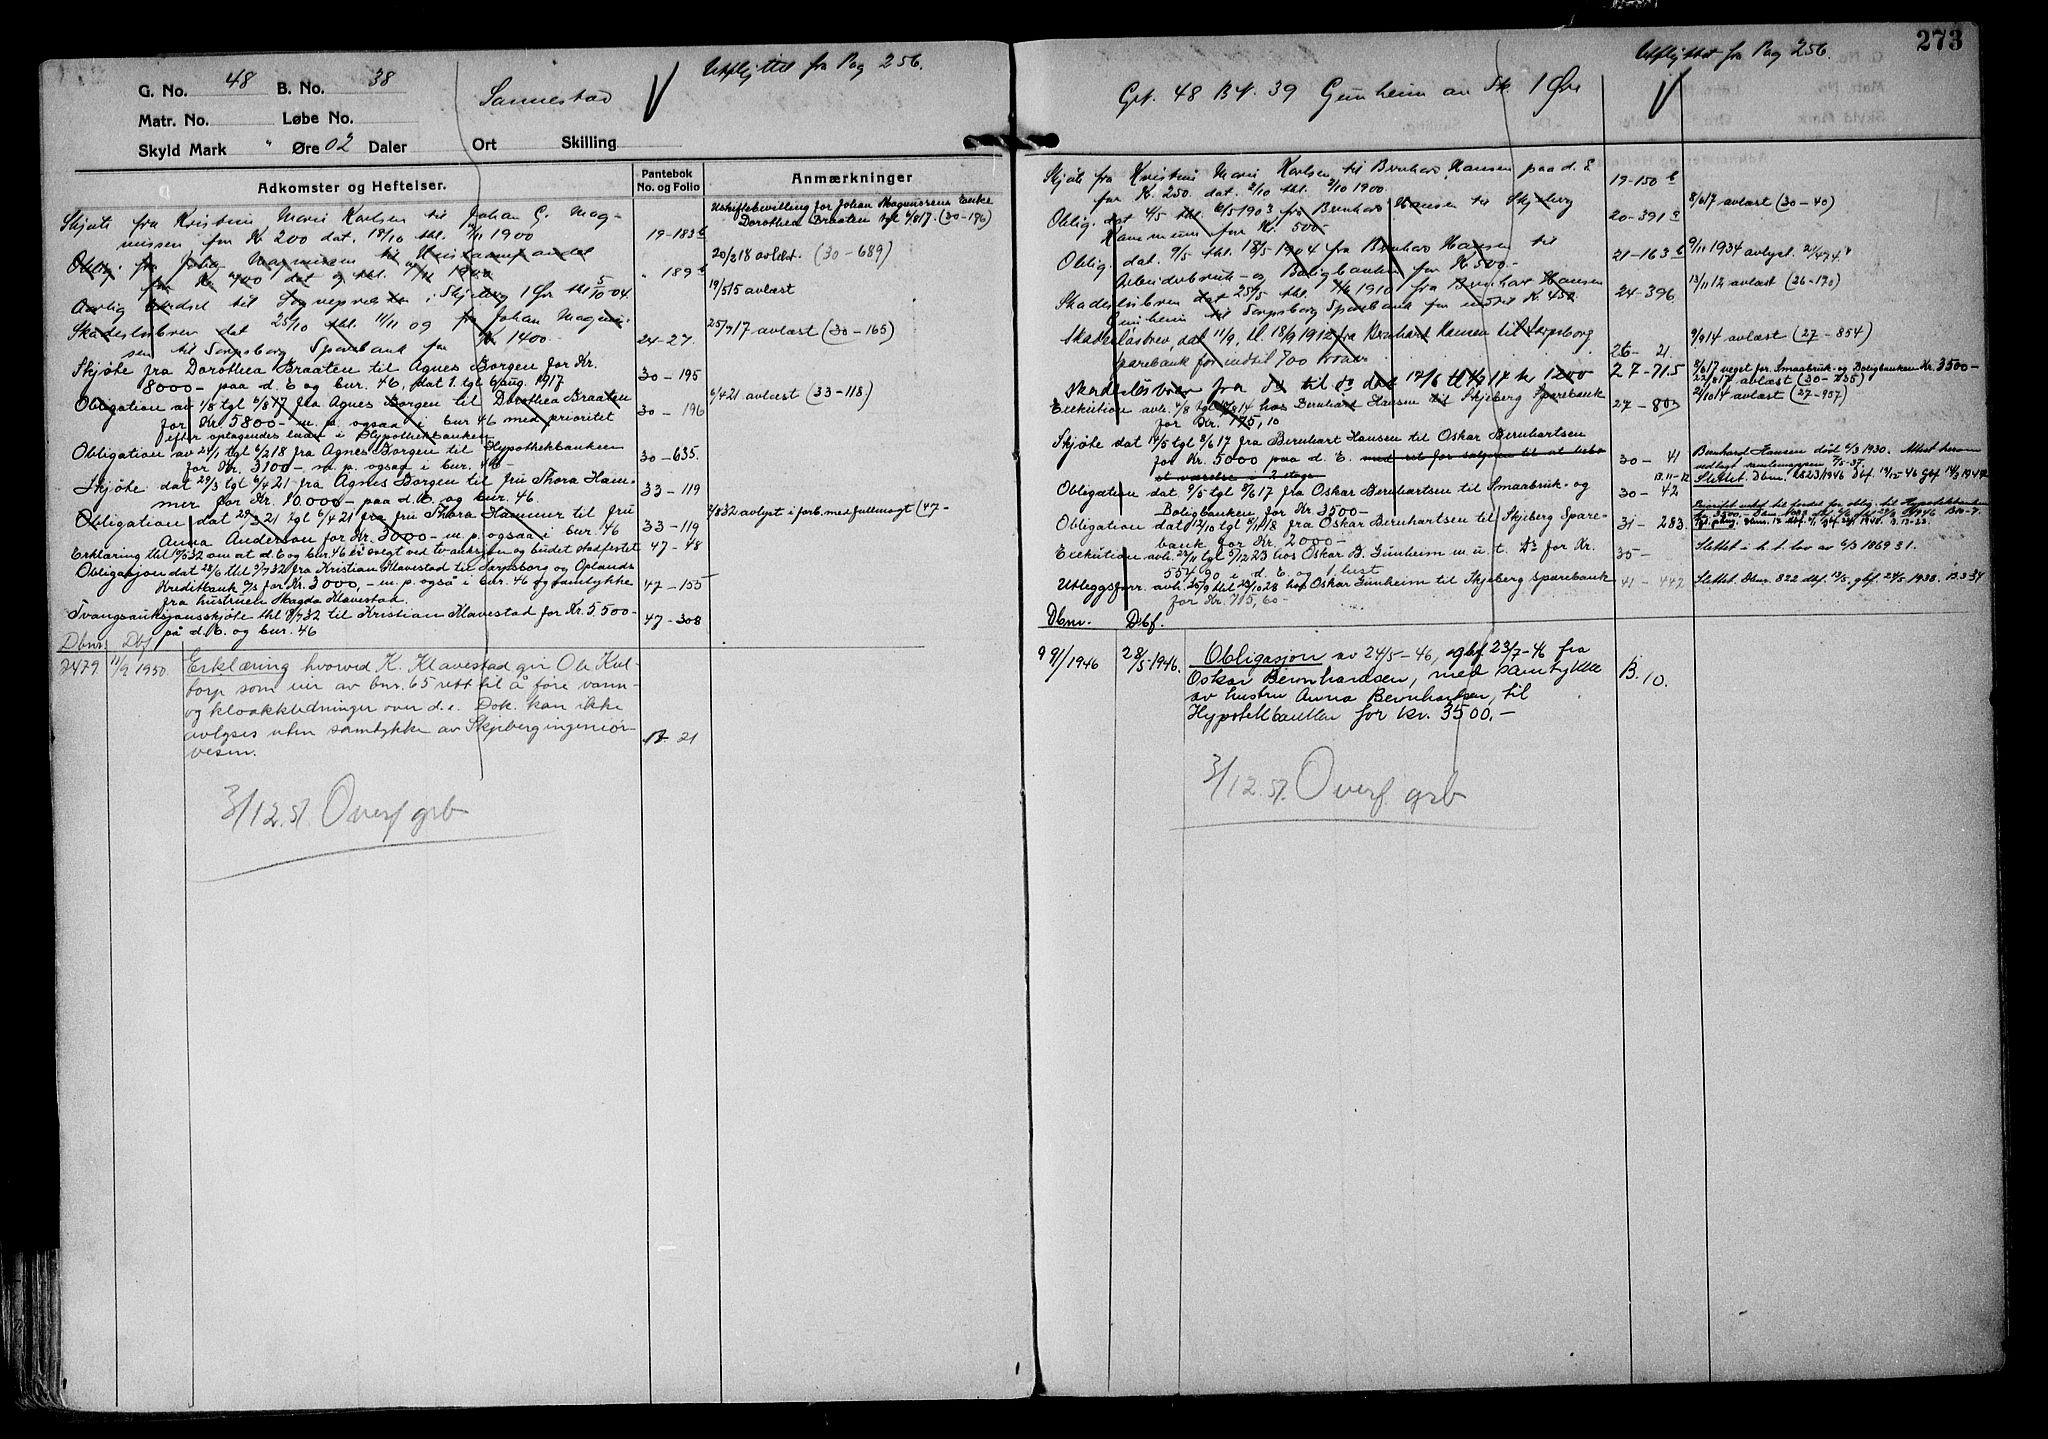 G. No. 48 B. No. 38 Sannestad
Utflyttet fra Pag 256.
Matr. No. Løbe No.
Skyld Mark " Øre 02 Daler Ort Skilling
Adkomster og Heftelser. Pantebok No. og Folio Anmærkninger
Skjøte fra Kristine Marie Karlsen til Johan G. Mag-
nussen for Kr 200 dat. 18/10 thl. 11/11 1900 19-183 b
Uskiftebevilling for Johan Magnussens Enke
Dorothea Braaten tgl 6/8 17. (30-196)
Oblig. fra Johan Magnussen til
for Kr 400 dat og thl. 1900 " 189 b 20/2 18 avlæst. (30-689)
Aarlig til Sognepresten i Skjeberg 1 Øre thl 5/10-04. 19/5 15 avlæst
Skadesløsbrev dat 25/10 thl. 11/11 09 fra Johan Magnus-
sen til Sarpsborg Sparebank for Kr 1400. 24-27. 25/7 17 avlæst (30-165)
Skjøte fra Dorothea Braaten til Agnes Borgen for Kr.
8000- paa d. E og bnr. 46, dat 1. tgl 6 aug. 1917 30-195
Obligation av 1/8 tgl 6/8 17 fra Agnes Borgen til Dorothea Braaten
for Kr 5800- m. p. ogsaa i bnr 46 med prioritet
efter optagendes laan i Hypothekbanken 30-196 6/4 21 avlæst (33-118.)
Obligation av 24/1 tgl 6/2 18 fra Agnes Borgen til Hypothekbanken
for Kr. 3100- m. p. ogsaa i bnr. 46- 30-635.
Skjøte dat 29/3 tgl 6/4 21 fra Agnes Borgen til fru Thora Ham-
mer for Kr. 10.000- paa d. E. og bnr. 46. 33-119
Obligation dat 29/3 21 tgl 6/4 21 fra fru Thora Hammer til fru
Anna Anderson for Kr. 3000- m. p. ogsaa i bnr. 46 33-119 832 avlyst i forb. med fullmagt (47-
Erklæring thl 10/5 32 om at d. E og bnr. 46 er solgt ved tv. auksjon og budet stadfestet 47-48
Obligasjon dat 23/6 thl 9/7 32 fra Kristian Klavestad til Sarpsborg og Oplands
Kreditbank A/S for Kr. 3000,- m. p. også i bnr. 46 og samtykke
fra hustruen Magda Klavestad. 47-155
Tvangsauksjonsskjøte thl 9/7 32 til Kristian Klavestad for Kr. 5500-
på d. E. og bnr. 46 47-308
Dbnr. Dbf
2479 11/9 1950. Erklæring hvorved K. Klavestad gir Ole Kul-
torp som eier av bnr. 65 rett til å føre vann-
og kloakkledninger over d. e. Dok. kan ikke
avlyses uten samtykke av Skjeberg ingeniør-
vesen. 17 21
3/12.57. Overf grb
273
Utflyttet fra Pag 256.
Gnr. 48 B.N. 39 Gunheim av Sk. 1 Øre
Skjøte fra Kristine Marie Karlsen til Bernhard Hansen paa d. E
for Kr. 250. dat. 2/10 thl. 2/10 1900. 19-150 b
Oblig. dat 4/5 thl. 6/5 1903 fra Bernhard Hansen til Skjeberg
Kommune for Kr. 500- 20-391 8/6 17 avlæst (30-40)
Oblig. dat. 9/5 thl. 18/5-1904 fra Bernhard Hansen til
Arbeiderbruk- og Boligbanken for Kr. 500- 21-163 b 9/11 1934 avlyst.
Skadesløsbrev dat 25/5 thl. 1910 fra Bernhard Hansen
Gunheim til Sarpsborg Sparebank for indtil Kr. 450. 24-396 13/11 12 avlæst (26-170)
Skadesløsbrev, dat 11/9, tl. 18/9 1912 fra Bernhard Hansen til Sarpsborg
Sparebank for indtil 700 kroner 26-21. 9/9 14 avlæst (27-854)
Skadesløsbrev fra do til do dat kr 1200 27-715 8/6 17 veget for Smaabruk- og Boligbanken Kr. 3500-
22/8 17 avlæst (30-235)
Exekution avh. 4/8 tgl 8 14 hos Bernhard Hansen til Skjeberg Sparebank
for Kr. 175,10 27-803 2/10 14 avlæst (27-907)
Skjøte dat 19/5 tgl 8/6 17 fra Bernhart Hansen til Oskar Bernhartsen
for Kr. 5000 paa d. E. med ret for sælgeren til at bebo
et værelse i 2 etage 30-41 Bernhard Hansen død 6/3 1930.
13.11-12 Slettet.
Obligation dat. 9/5 tgl 8/6 17 fra Oskar Bernhartsen til Smaabruk- og
Boligbanken for Kr. 3500- 30-42
Obligation dat 12/10 tgl 18 fra Oskar Bernhartsen til Skjeberg Spare-
bank for Kr. 2000- 31-283.
Exekution avh. 22/11 tgl 5/12 23 hos Oskar B. Gunheim m. u. t. Ds for Kr.
554,90 i d. E. og 1 hest 35- Slettet i h. t. lov av 6/3 1869 § 1.
Utleggsforr. avh. 25/9 thl 10 28 hos Oskar Gunheim til Skjeberg Sparebank
for Kr. 715,60- 41-442 Slettet. Dbnr. 822 dbf. 19/5. gbf. 24/5 1938. B. 3 34
Dbnr. Dbf.
991/1946 28/5-1946. Obligasjon av 24/5-46, gbf 23/7-46 fra
Oskar Bernhardsen, med samtykke
av hustru Anna Bernhardsen, til
Hypotekbanken for kr. 3500,- B. 10.
3/12.57. Overf. grb